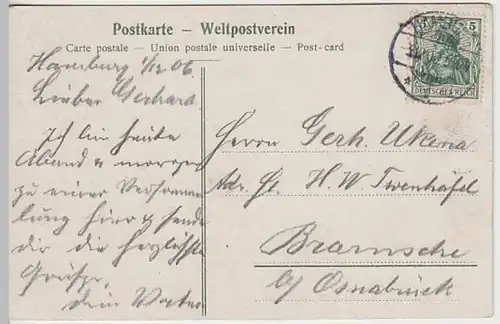 Postkarte – Weltpostverein
Carte postale – Union postale universelle – Post-card
Hamburg 1/12 06.
Lieber Gerhard.
Ich bin heute
Abend u morgen
zu einer Versamm
lung hier u sende
dir die herzlichste
Grüsse,
dein Vater
5
DEUTSCHES REICH
Herrn Gerh. Ukena
Adr. H. W. Twenhäfel
Bramsche
b/ Osnabrück